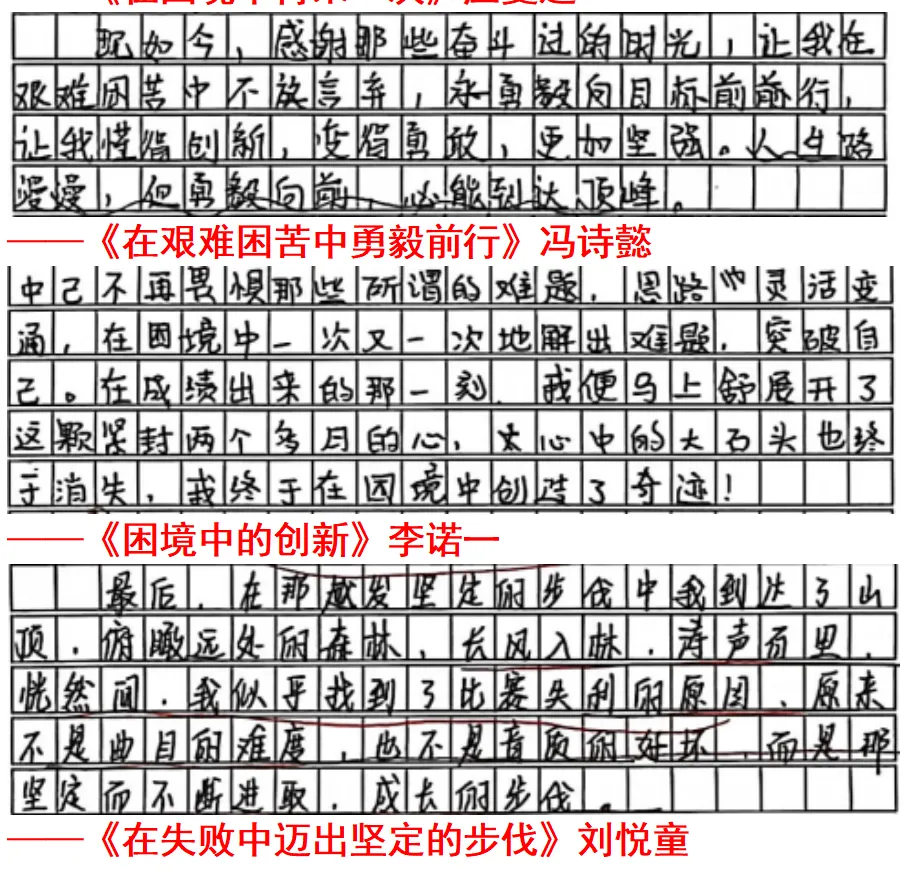 现如今，感谢那些奋斗过的时光，让我在
艰难困苦中不放言弃，永勇毅向目标前前行，
让我懂得创新，变得勇敢，更加坚强。人生路
漫漫，但勇毅向前，必能到达顶峰。
——《在艰难困苦中勇毅前行》冯诗懿
中已不再畏惧那些所谓的难题，思路也灵活变
通，在困境中一次又一次地解出难题，突破自
己。在成绩出来的那一刻，我便马上舒展开了
这颗紧封两个多月的心，太心中的大石头也终
于消失，我终于在困境中创造了奇迹！
——《困境中的创新》李诺一
最后，在那越发坚定的步伐中我到达了山
顶，俯瞰远处的森林，长风入林，涛声万里，
恍然间，我似乎找到了比赛失利的原因，原来
不是曲目的难度，也不是音质的好坏，而是那
坚定而不断进取，成长的步伐。
——《在失败中迈出坚定的步伐》刘悦童